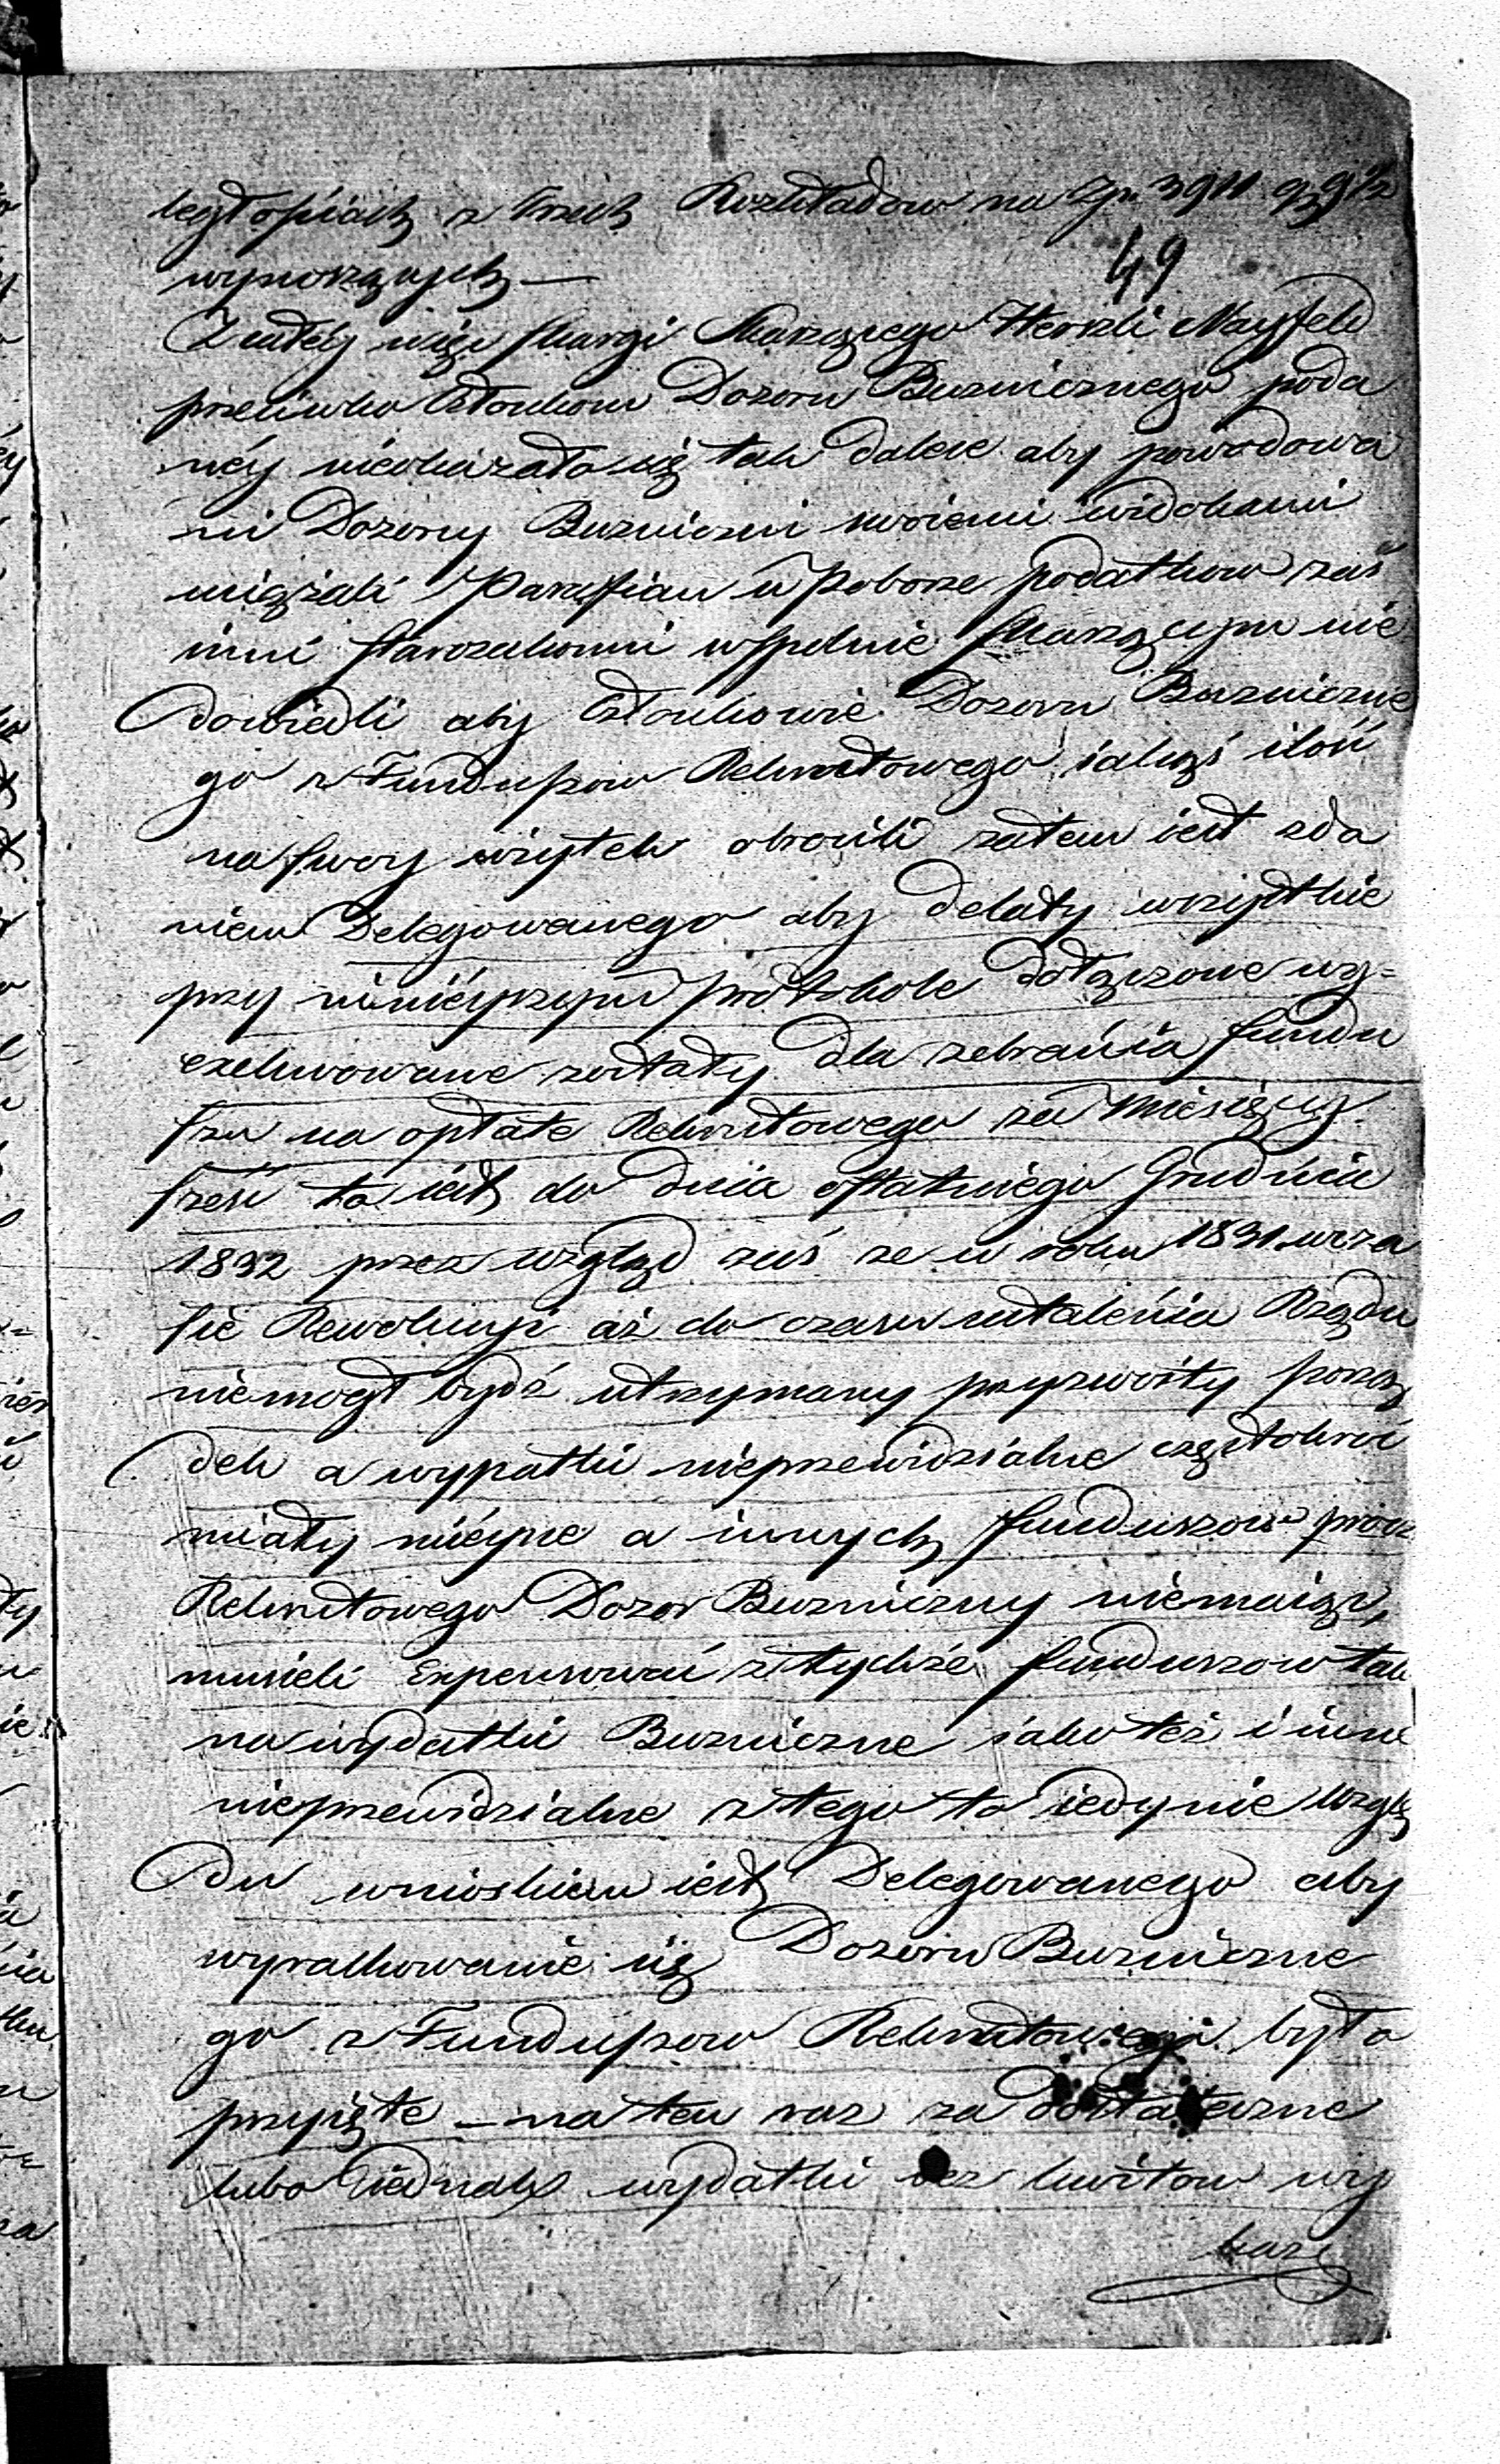 ległościach z trzech Rozkładow na Zp. 3911 g 9½
49
wynoszących —
Z całéy więc skargi Skarzącego Herszli Nayfeld
przeciwko Członkom Dozoru Buznicznego poda
néy nieokazało się tak dalece aby powodowa
ni Dozorcy Buzniczni swoiemi widokami
uciążali Parafian w Poborze podatkow zaś
inni starozakonni wspolnie skarzącym nie
dowiedli aby Członkowie Dozoru Buznicznе
go z Funduszow Rekrutowego iakąś ilość
na swoy użytek obrocili zatem iest zda
niem Delegowanego aby delaty wszystkie
przy ninieyszym protokole dołączone wy=
exekwowane zostały dla zebrania fundu
szu na opłate Rekrutowego za Miesięcy
sześć to iest do dnia ostatniego Grudnia
1832 przez wzgląd zaś ze w roku 1831 w cza
sie Rewolucyi aż do czasu ustalenia Rządu
niemogł bydź utrzymany przyzwoity porzą
dek a wypatki nieprzewidzialne częstokroć
miały mieysce a innych funduszow procz
Rekrutowego Dozor Buzniczny niemaiąc,
musieli Expensować z tychże funduszow tak
na wydatki Buzniczne iako też i inne
nieprzewidzialne z tego to iedynie wzglę
du wnioskiem iest Delegowanego aby
wyrachowanie się Dozoru Buznicznе
go z Funduszow Rekrutowego było
przyięte — na ten raz za dostateczne
lubo iednak wydatki bez kwitow wy
kaza